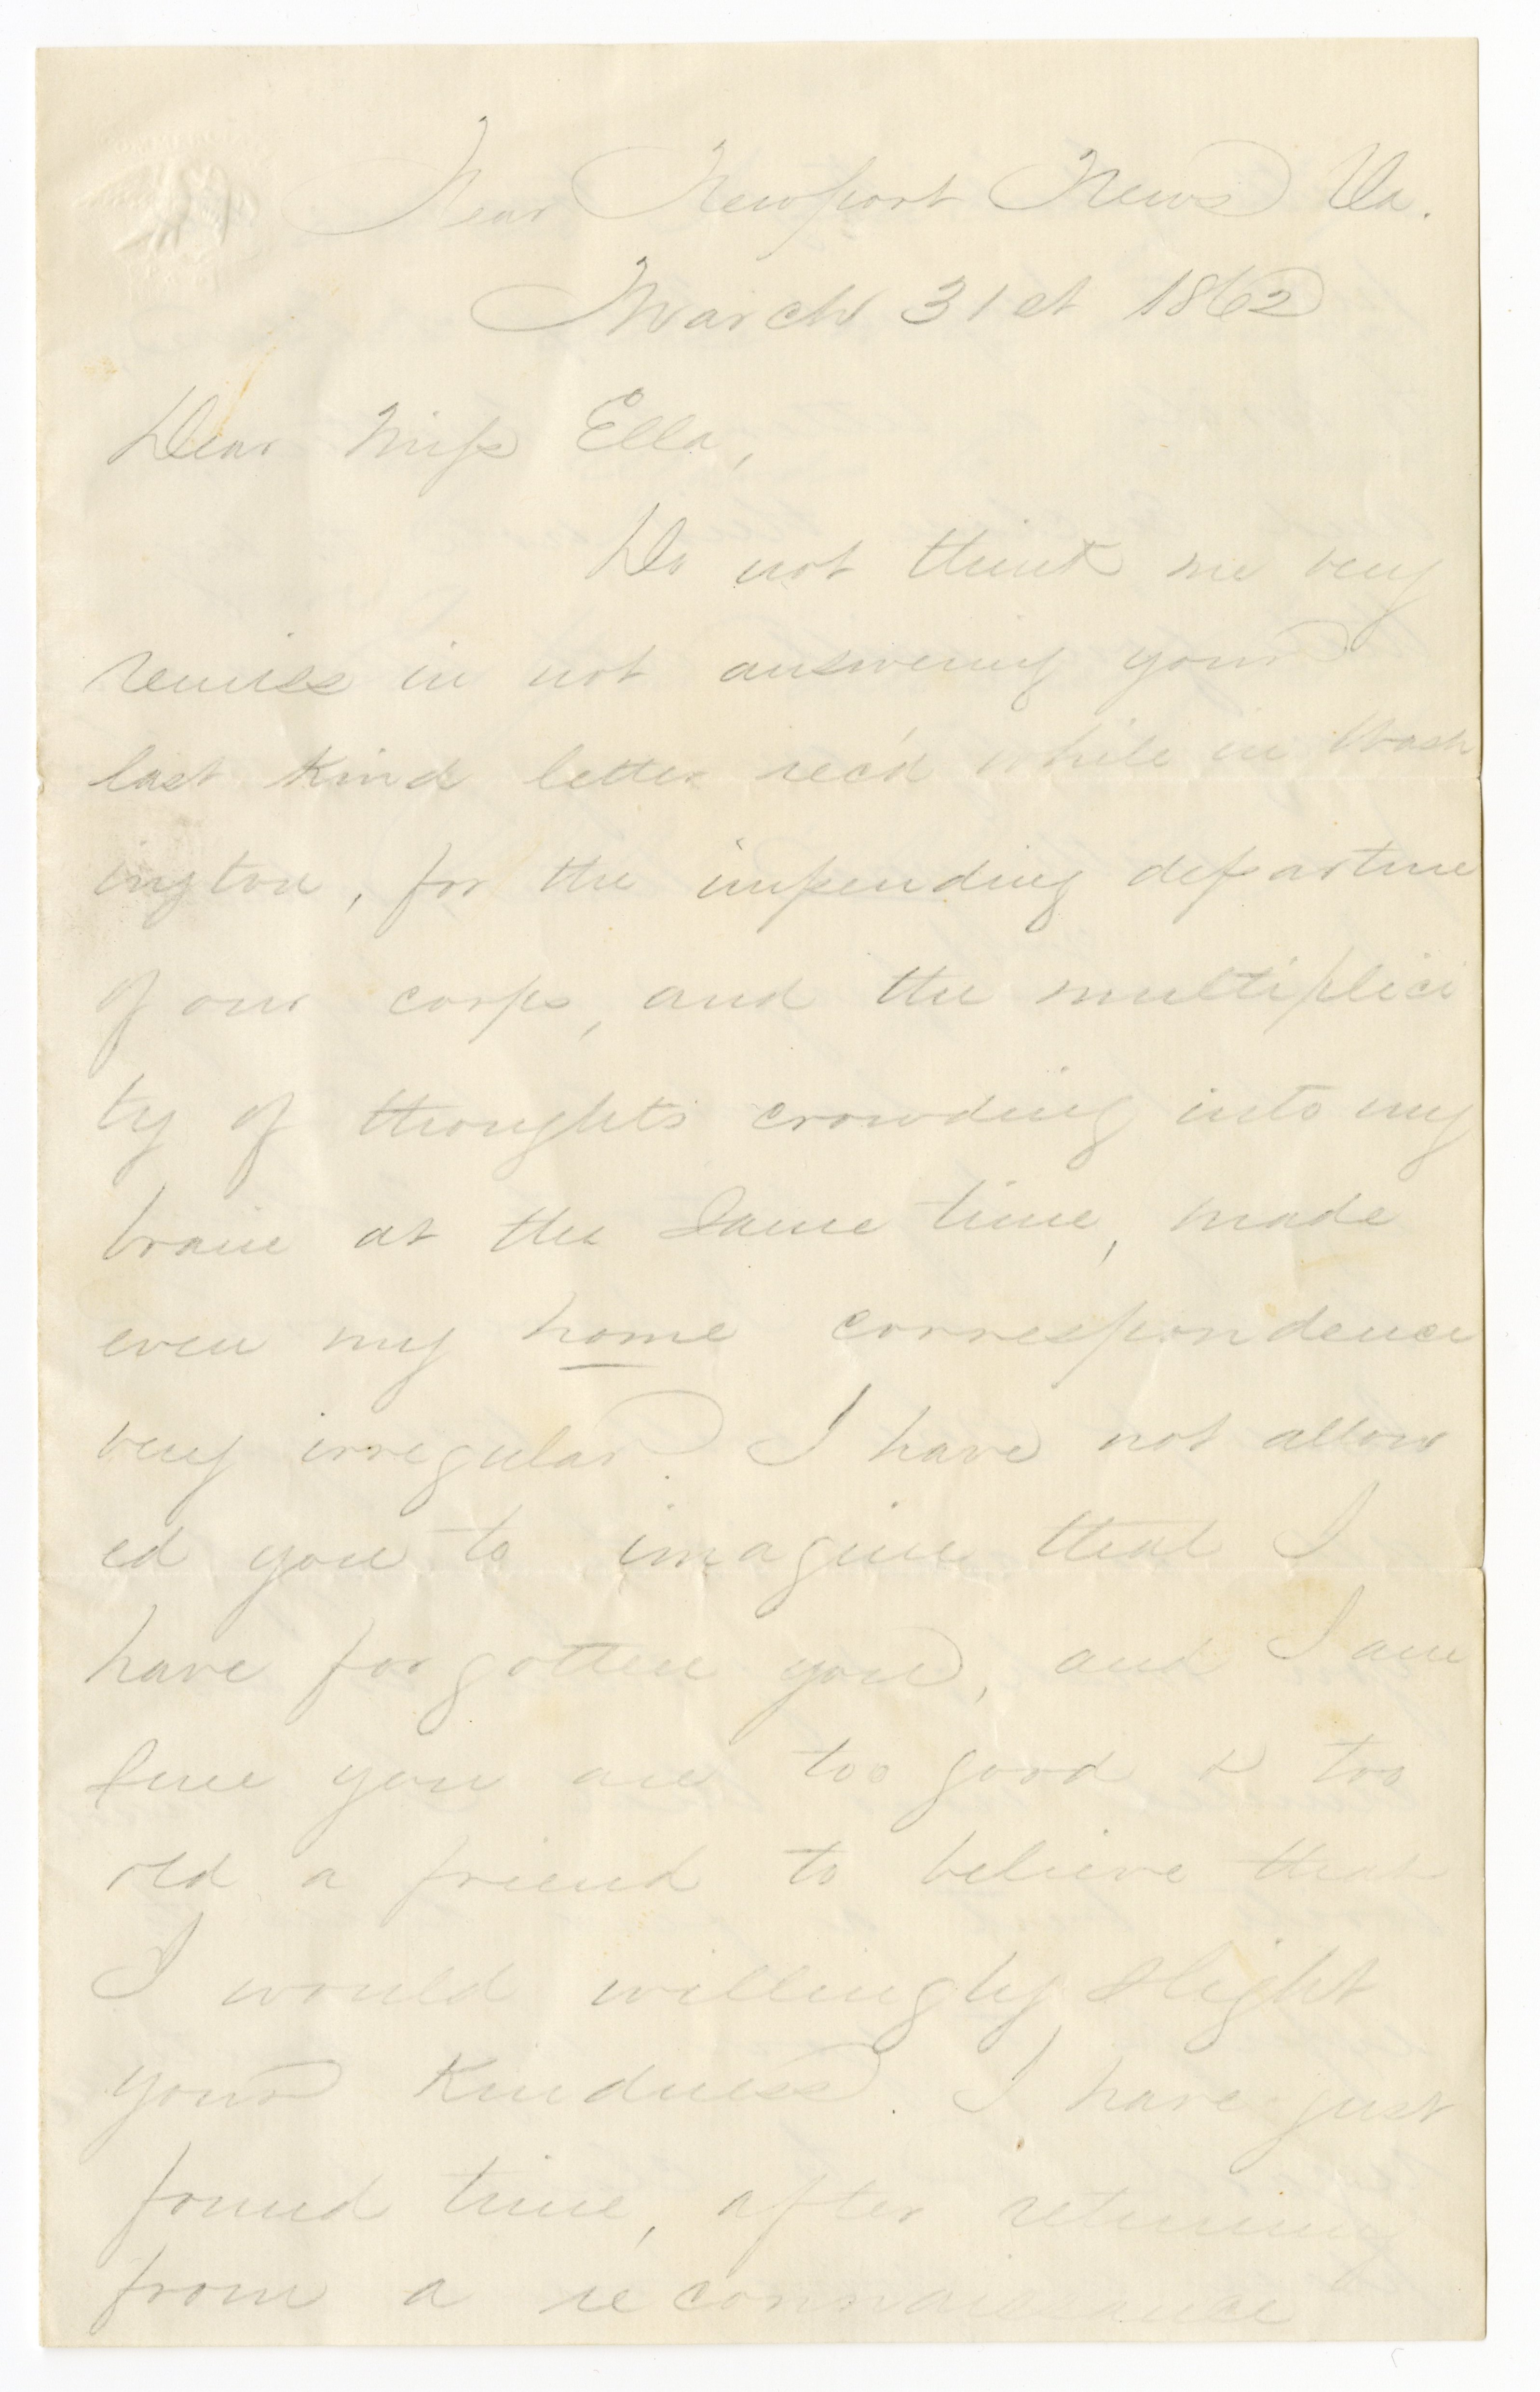 Near Newport News Va.
March 31st 1862
Dear Miss Ella,
Do not think me very
remiss in not answering your
last kind letter rec'd while in Wash
ington, for the impending departure
of our corps, and the multiplici
ty of thoughts crowding into my
brain at the same time, made
even my home correspondence
very irregular. I have not allow
ed you to imagine that I
have forgotten you, and I am
sure you are too good & too
old a friend to believe that
I would willingly slight
your kindness. I have just
found time, after returning
from a reconnaissance